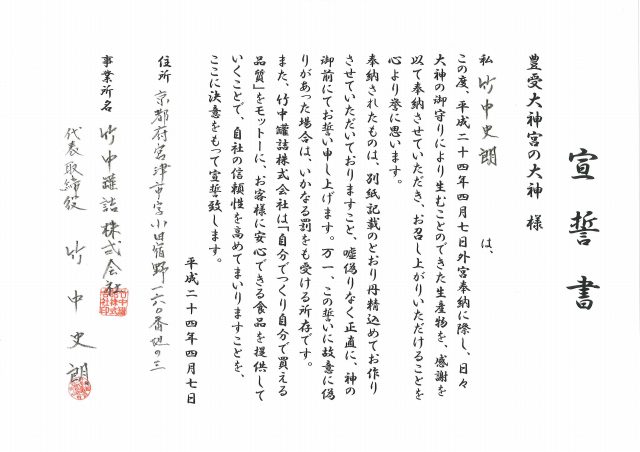 宣誓書
豊受大神宮の大神 様
私 竹中史朗 は、
この度、平成二十四年四月七日外宮奉納に際し、日々
大神の御守りにより生むことのできた生産物を、感謝を
以て奉納させていただき、お召し上がりいただけることを
心より誉に思います。
奉納されたものは、別紙記載のとおり丹精込めてお作り
させていただいておりますこと、嘘偽りなく正直に、神の
御前にてお誓い申し上げます。万一、この誓いに故意に偽
りがあった場合は、いかなる罰をも受ける所存です。
また、竹中罐詰株式会社は「自分でつくり自分で買える
品質」をモットーに、お客様に安心できる食品を提供して
いくことで、自社の信頼性を高めてまいりますことを、
ここに決意をもって宣誓致します。
平成二十四年四月七日
住所 京都府宮津市字小田宿野一六〇番地の三
事業所名 竹中罐詰株式会社
代表取締役 竹中史朗